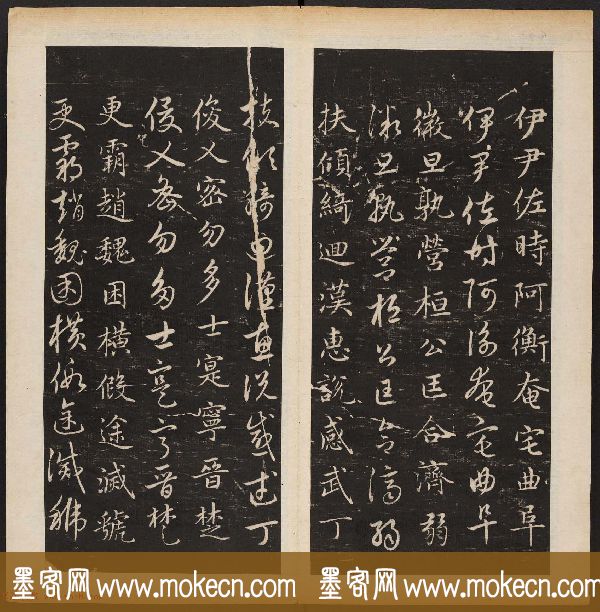 伊尹佐時阿衡奄宅曲阜
伊尹佐時阿衡奄宅曲阜
微旦孰營桓公匡合濟弱
微旦孰營桓公匡合濟弱
扶傾綺迴漢惠說感武丁
扶傾綺迴漢惠說感武丁
俊乂密勿多士寔寧晉楚
俊乂密勿多士寔寧晉楚
更霸趙魏困橫假途滅虢
更霸趙魏困橫假途滅虢
墨客网 www.mokecn.com 墨客网 www.mokecn.com